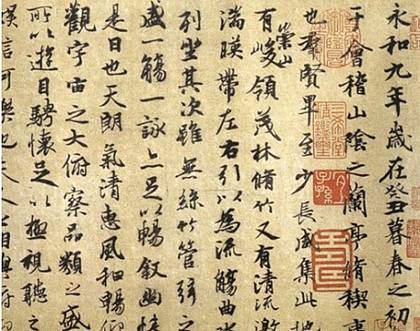 永和九年歲在癸丑暮春之初
于會稽山陰之蘭亭脩稧事
也羣賢畢至少長咸集此地
有崇山峻領茂林脩竹又有清流激
湍暎帶左右引以為流觴曲水
列坐其次雖無絲竹管弦之
盛一觴一詠亦足以暢叙幽情
是日也天朗氣清惠風和暢仰
觀宇宙之大俯察品類之盛
所以遊目騁懷足以極視聽之
娛信可樂也夫人之相與俯